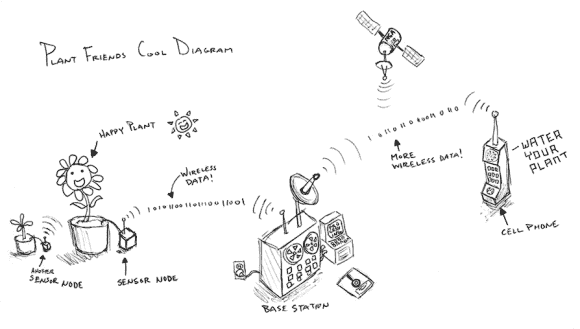 PLANT FRIENDS COOL DIAGRAM
HAPPY PLANT
WIRELESS
DATA!
0101011001101100 11001
ANOTHER
SENSOR NODE
SENSOR NODE
BASE STATION
MORE
WIRELESS DATA!
CELL PHONE
WATER
YOUR
PLANT